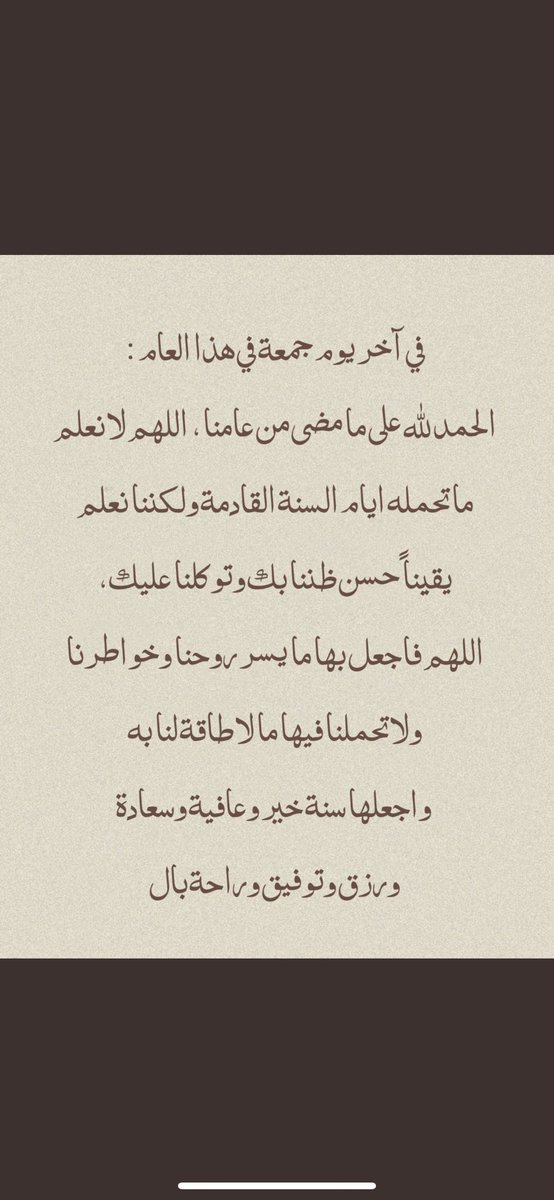 في آخر يوم جمعة في هذا العام :
الحمدلله على ما مضى من عامنا ، اللهم لا نعلم
ماتحمله ايام السنة القادمة ولكننا نعلم
يقيناً حسن ظننا بك وتوكلنا عليك،
اللهم فاجعل بها ما يسر روحنا وخواطرنا
ولا تحملنا فيها ما لا طاقة لنا به
واجعلها سنة خير وعافية وسعادة
ورزق وتوفيق وراحة بال